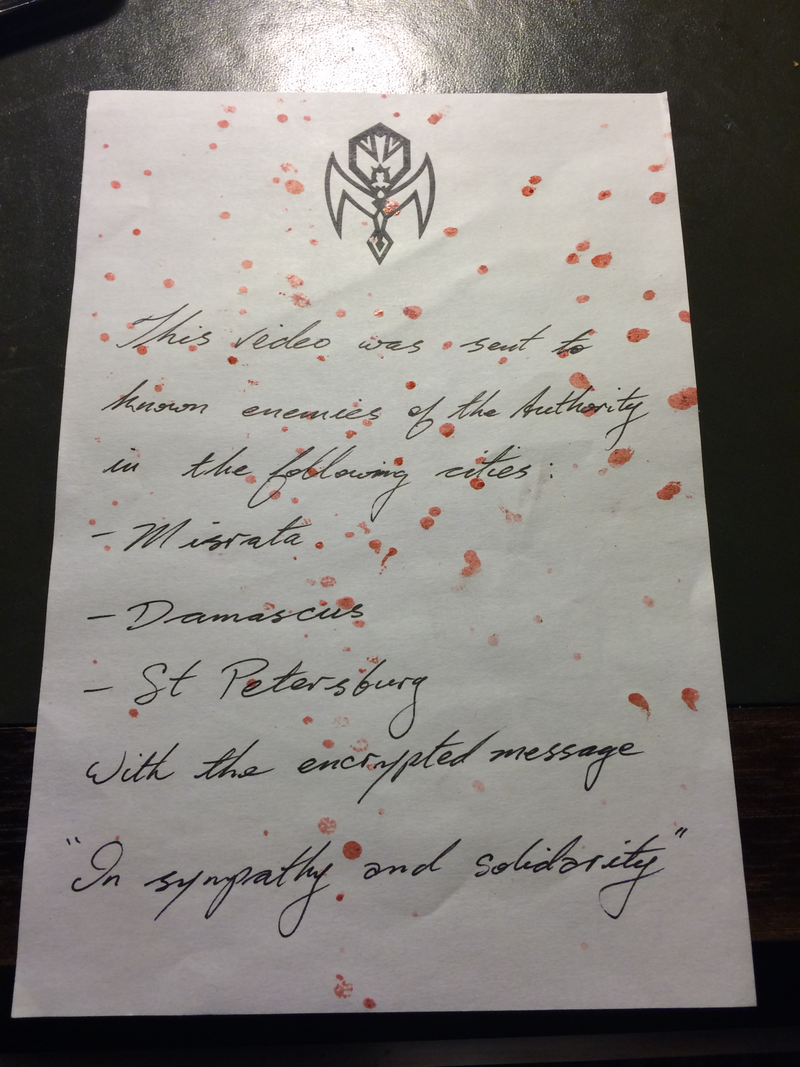 This video was sent to
known enemies of the Authority
in the following cities:
- Misrata
- Damascus
- St Petersburg
With the encrypted message
"In sympathy and solidarity"